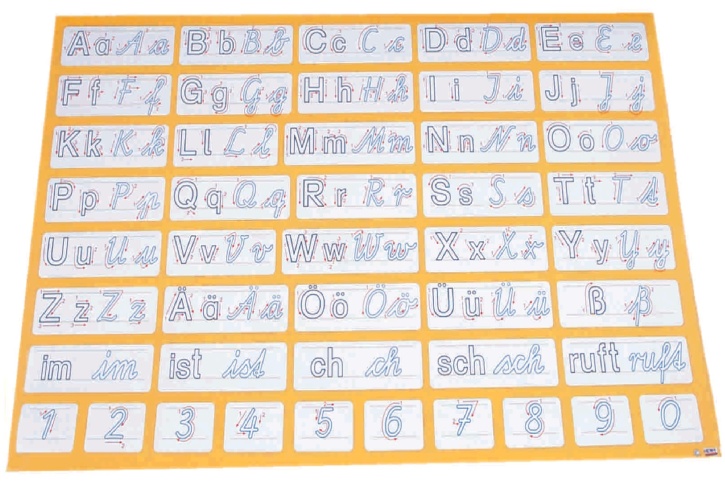 A a A a B b B b C c C c D d D d E e E e
F f F f G g G g H h H h I i I i J j J j
K k K k L l L l M m M m N n N n O o O o
P p P p Q q Q q R r R r S s S s T t T t
U u U u V v V v W w W w X x X x Y y Y y
Z z Z z Ä ä Ä ä Ö ö Ö ö Ü ü Ü ü ß ß
im im ist ist ch ch sch sch ruft ruft
1 2 3 4 5 6 7 8 9 0